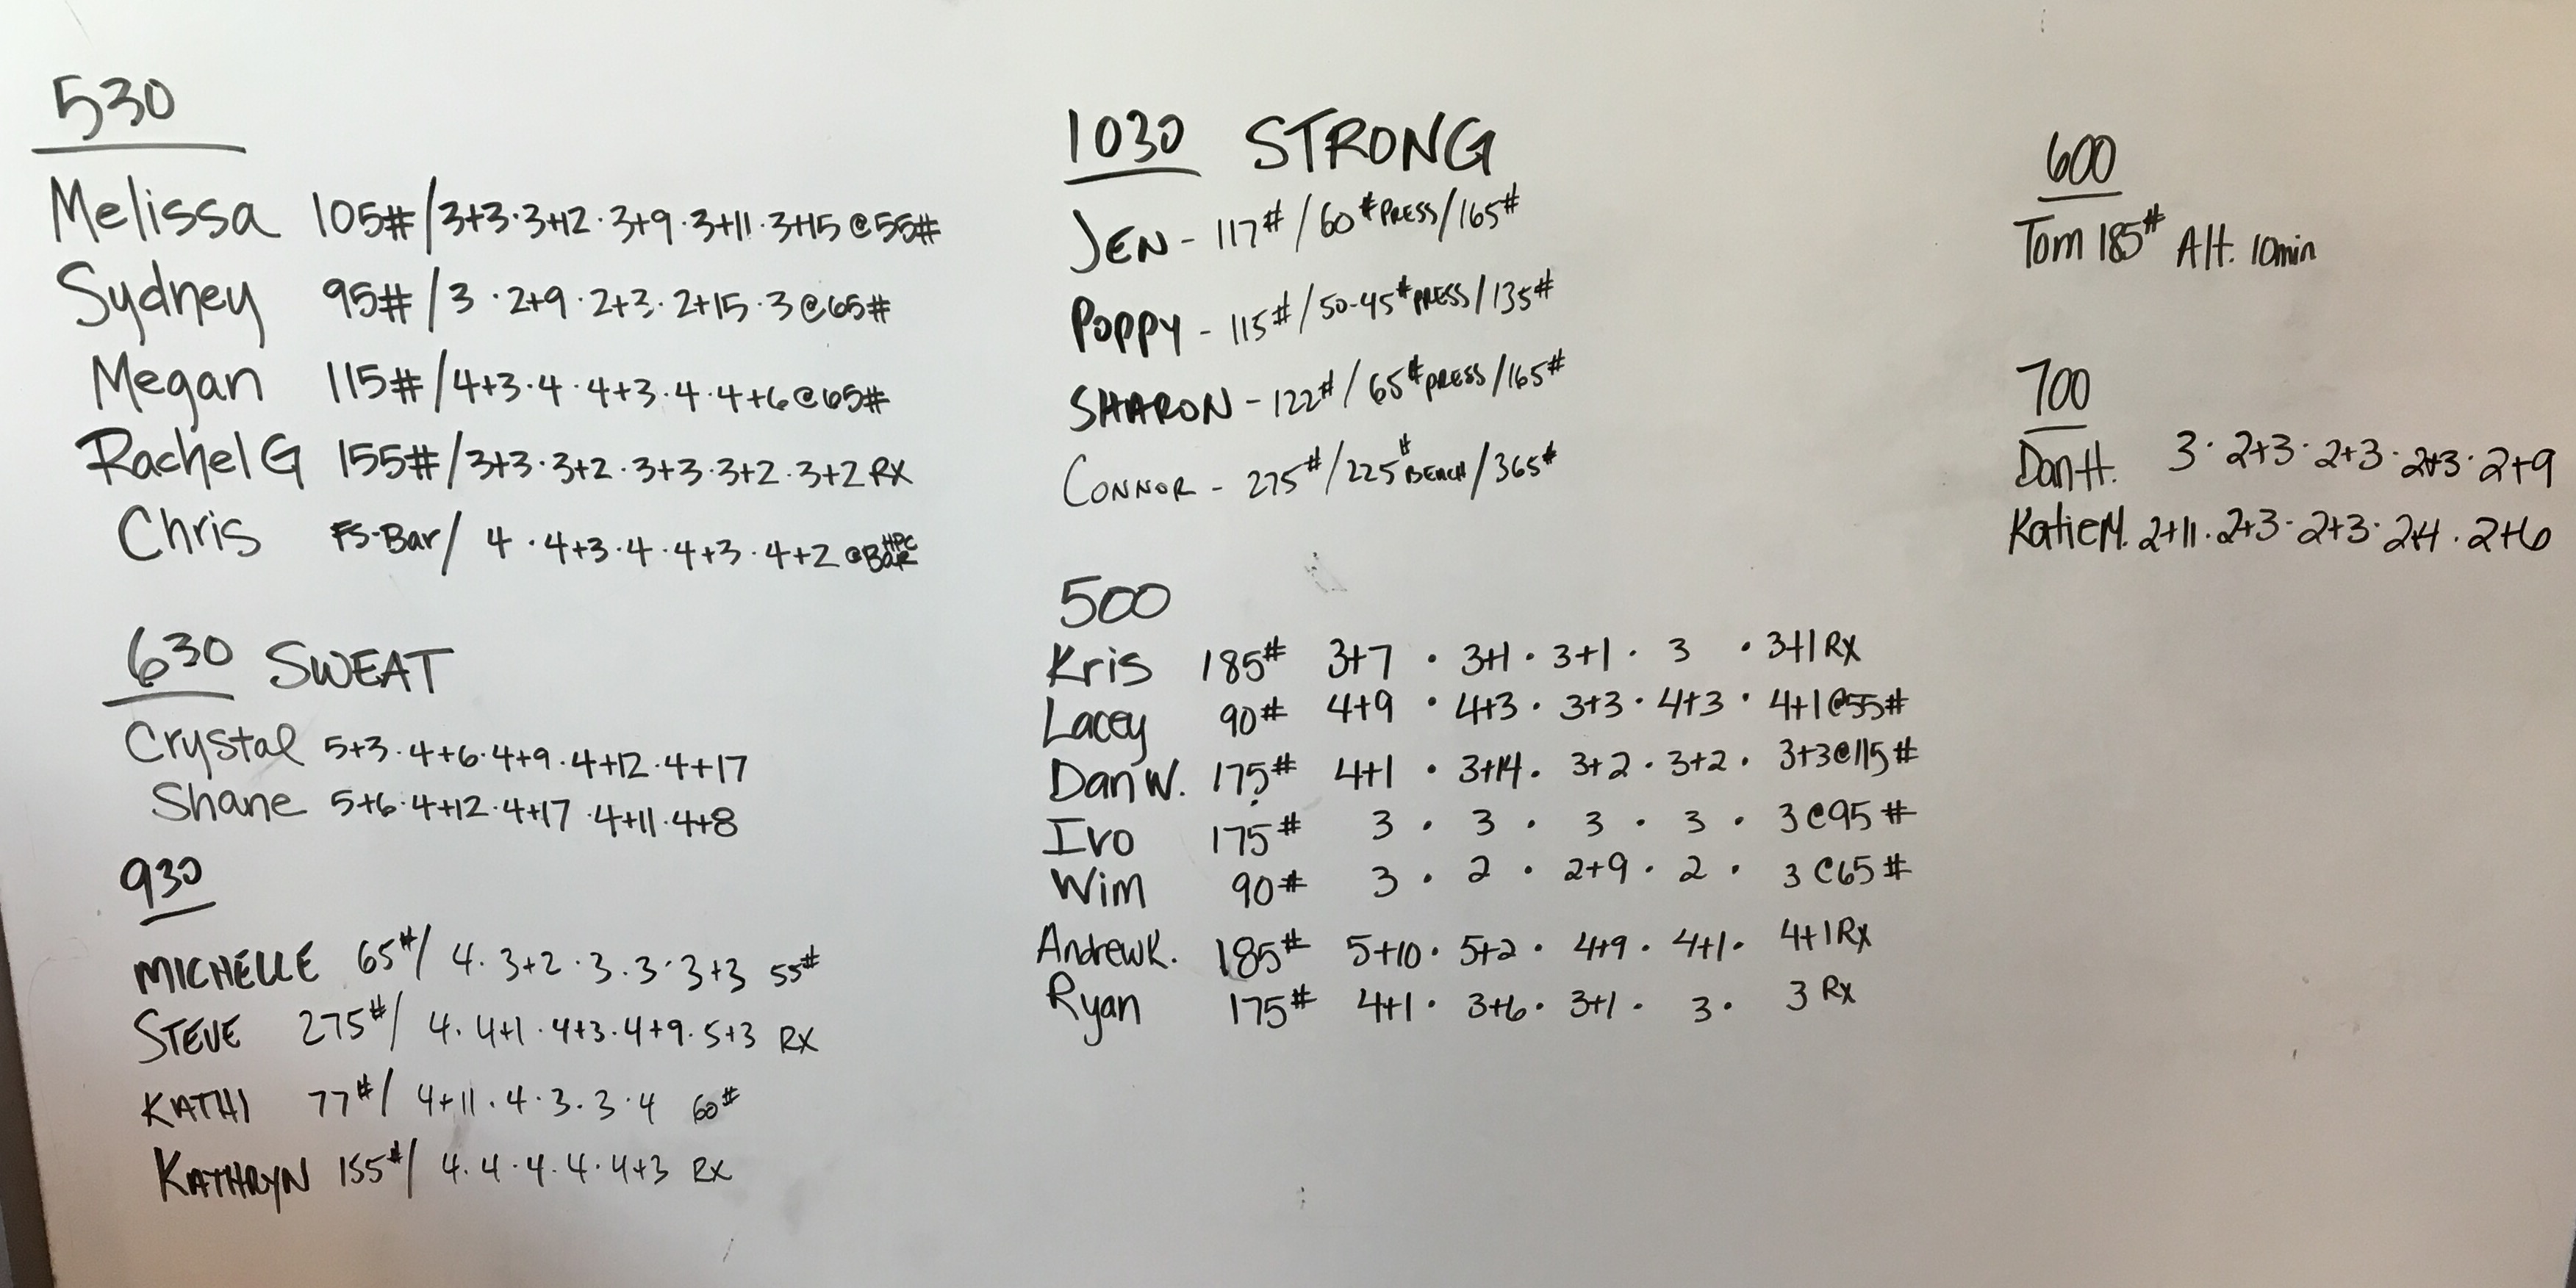 530
Melissa 105#/3+3·3+12·3+9·3+11·3+15 @55#
Sydney 95#/3·2+9·2+3·2+15·3@65#
Megan 115#/4+3·4·4+3·4·4+6@65#
Rachel G 155#/3+3·3+2·3+3·3+2·3+2 RX
Chris FS-Bar/ 4·4+3·4·4+3·4+2 @BAR HPC
630 SWEAT
Crystal 5+3·4+6·4+9·4+12·4+17
Shane 5+6·4+12·4+17·4+11·4+8
930
MICHELLE 65#/ 4·3+2·3·3·3+3 55#
STEVE 275#/ 4·4+1·4+3·4+9·5+3 RX
KATHI 77#/ 4+11·4·3·3·4 60#
KATHRYN 155#/ 4·4·4·4·4+3 RX
1030 STRONG
JEN - 117#/60# PRESS/165#
POPPY - 115#/50-45# PRESS/135#
SHARON - 122#/65# PRESS/165#
CONNOR - 275#/225# BENCH/365#
500
Kris 185# 3+7 · 3+1 · 3+1 · 3 · 3+1 RX
Lacey 90# 4+9 · 4+3 · 3+3 · 4+3 · 4+1@55#
Dan W. 175# 4+1 · 3+14 · 3+2 · 3+2 · 3+3@115#
Ivo 175# 3 · 3 · 3 · 3 · 3@95#
Wim 90# 3 · 2 · 2+9 · 2 · 3@65#
Andrew K. 185# 5+10 · 5+2 · 4+9 · 4+1 · 4+1 Rx
Ryan 175# 4+1 · 3+6 · 3+1 · 3 · 3 Rx
600
Tom 185# Alt. 10min
700
Dan H. 3·2+3·2+3·2+3·2+9
Katie M. 2+11·2+3·2+3·2+4·2+6